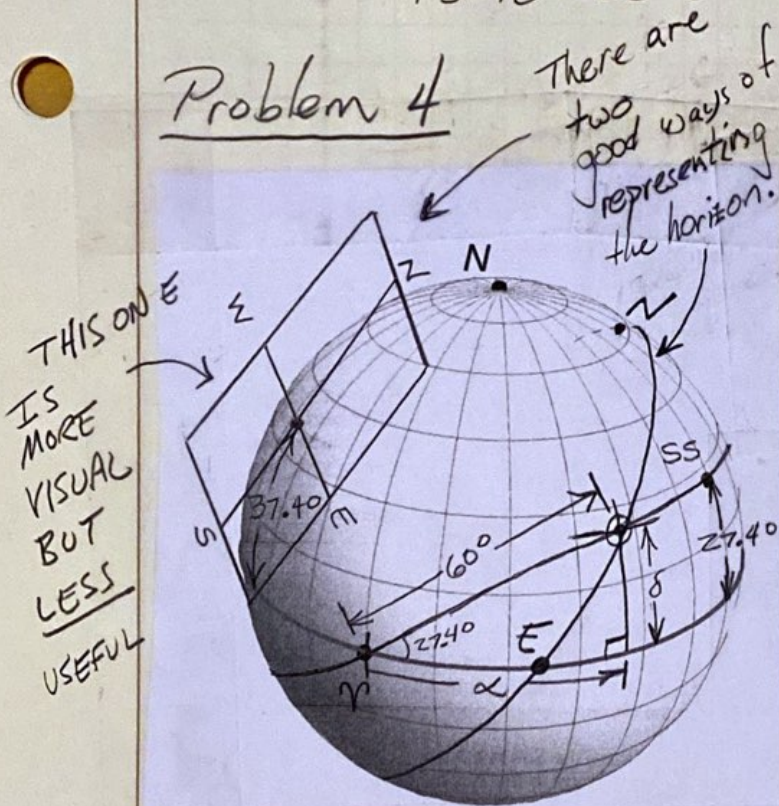 Problem 4
There are
two
good ways of
representing
the horizon.
THIS ONE
IS
MORE
VISUAL
BUT
LESS
USEFUL
N
Z
W
S
E
37.4°
60°
27.4°
SS
27.4°
δ
E
♈
α
N